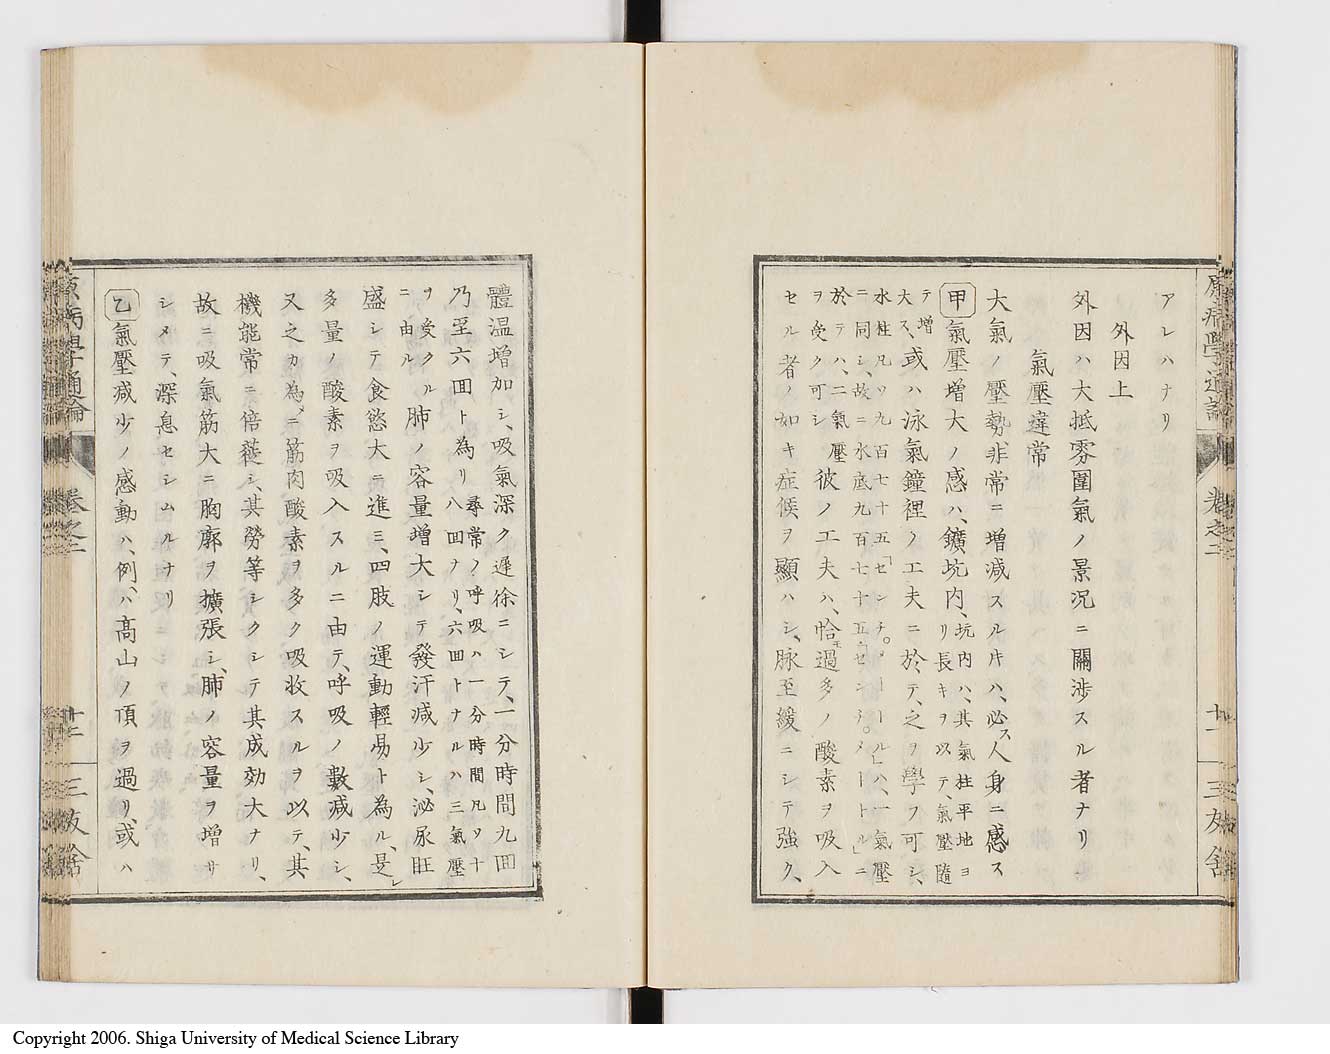 アレハナリ
外因上
外因ハ大抵雰圍氣ノ景況ニ關渉スル者ナリ
氣壓違常
大氣ノ壓勢非常ニ增減スル片ハ、必ス人身ニ感ス
甲氣壓增大ノ感ハ、鑛坑内、坑内ハ、其氣柱平地ヨリ長キヲ以テ、氣壓隨テ增
大ス、或ハ泳氣鐘裡ノ工夫ニ於テ、之ヲ學フ可シ、
水柱凡ソ九百七十五「センチ。メートル」ハ、一氣壓ニ同シ、故ニ水底九百七十五「センチ。メートル」ニ
於テハ、二氣壓ヲ受ク可シ彼ノ工夫ハ、恰モ過多ノ酸素ヲ吸入
セル者ノ如キ症候ヲ顯ハシ、脉至緩ニシテ強ク、
原病學通論
卷之二
十一
三友舍
體温增加シ、吸氣深ク遲徐ニシテ、一分時間九回
乃至六回ト為リ尋常ノ呼吸ハ一分時間凡ソ十八回ナリ、六回トナルハ三氣壓
ヲ受クルニ由ル肺ノ容量增大シテ發汗減少シ、泌尿旺
盛シテ食慾大ニ進ミ、四肢ノ運動輕易ト為ル、是レ
多量ノ酸素ヲ吸入スルニ由テ、呼吸ノ數減少シ、
又之カ為メニ筋肉酸素ヲ多ク吸收スルヲ以テ、其
機能常ニ倍蓰シ、其勞等シクシテ其成効大ナリ、
故ニ吸氣筋大ニ胸廓ヲ擴張シ、肺ノ容量ヲ增サ
シメテ、深息セシムルナリ
乙氣壓減少ノ感動ハ、例ハ高山ノ頂ヲ過リ、或ハ
原病學通論
卷之二
十二
三友舍
Copyright 2006. Shiga University of Medical Science Library